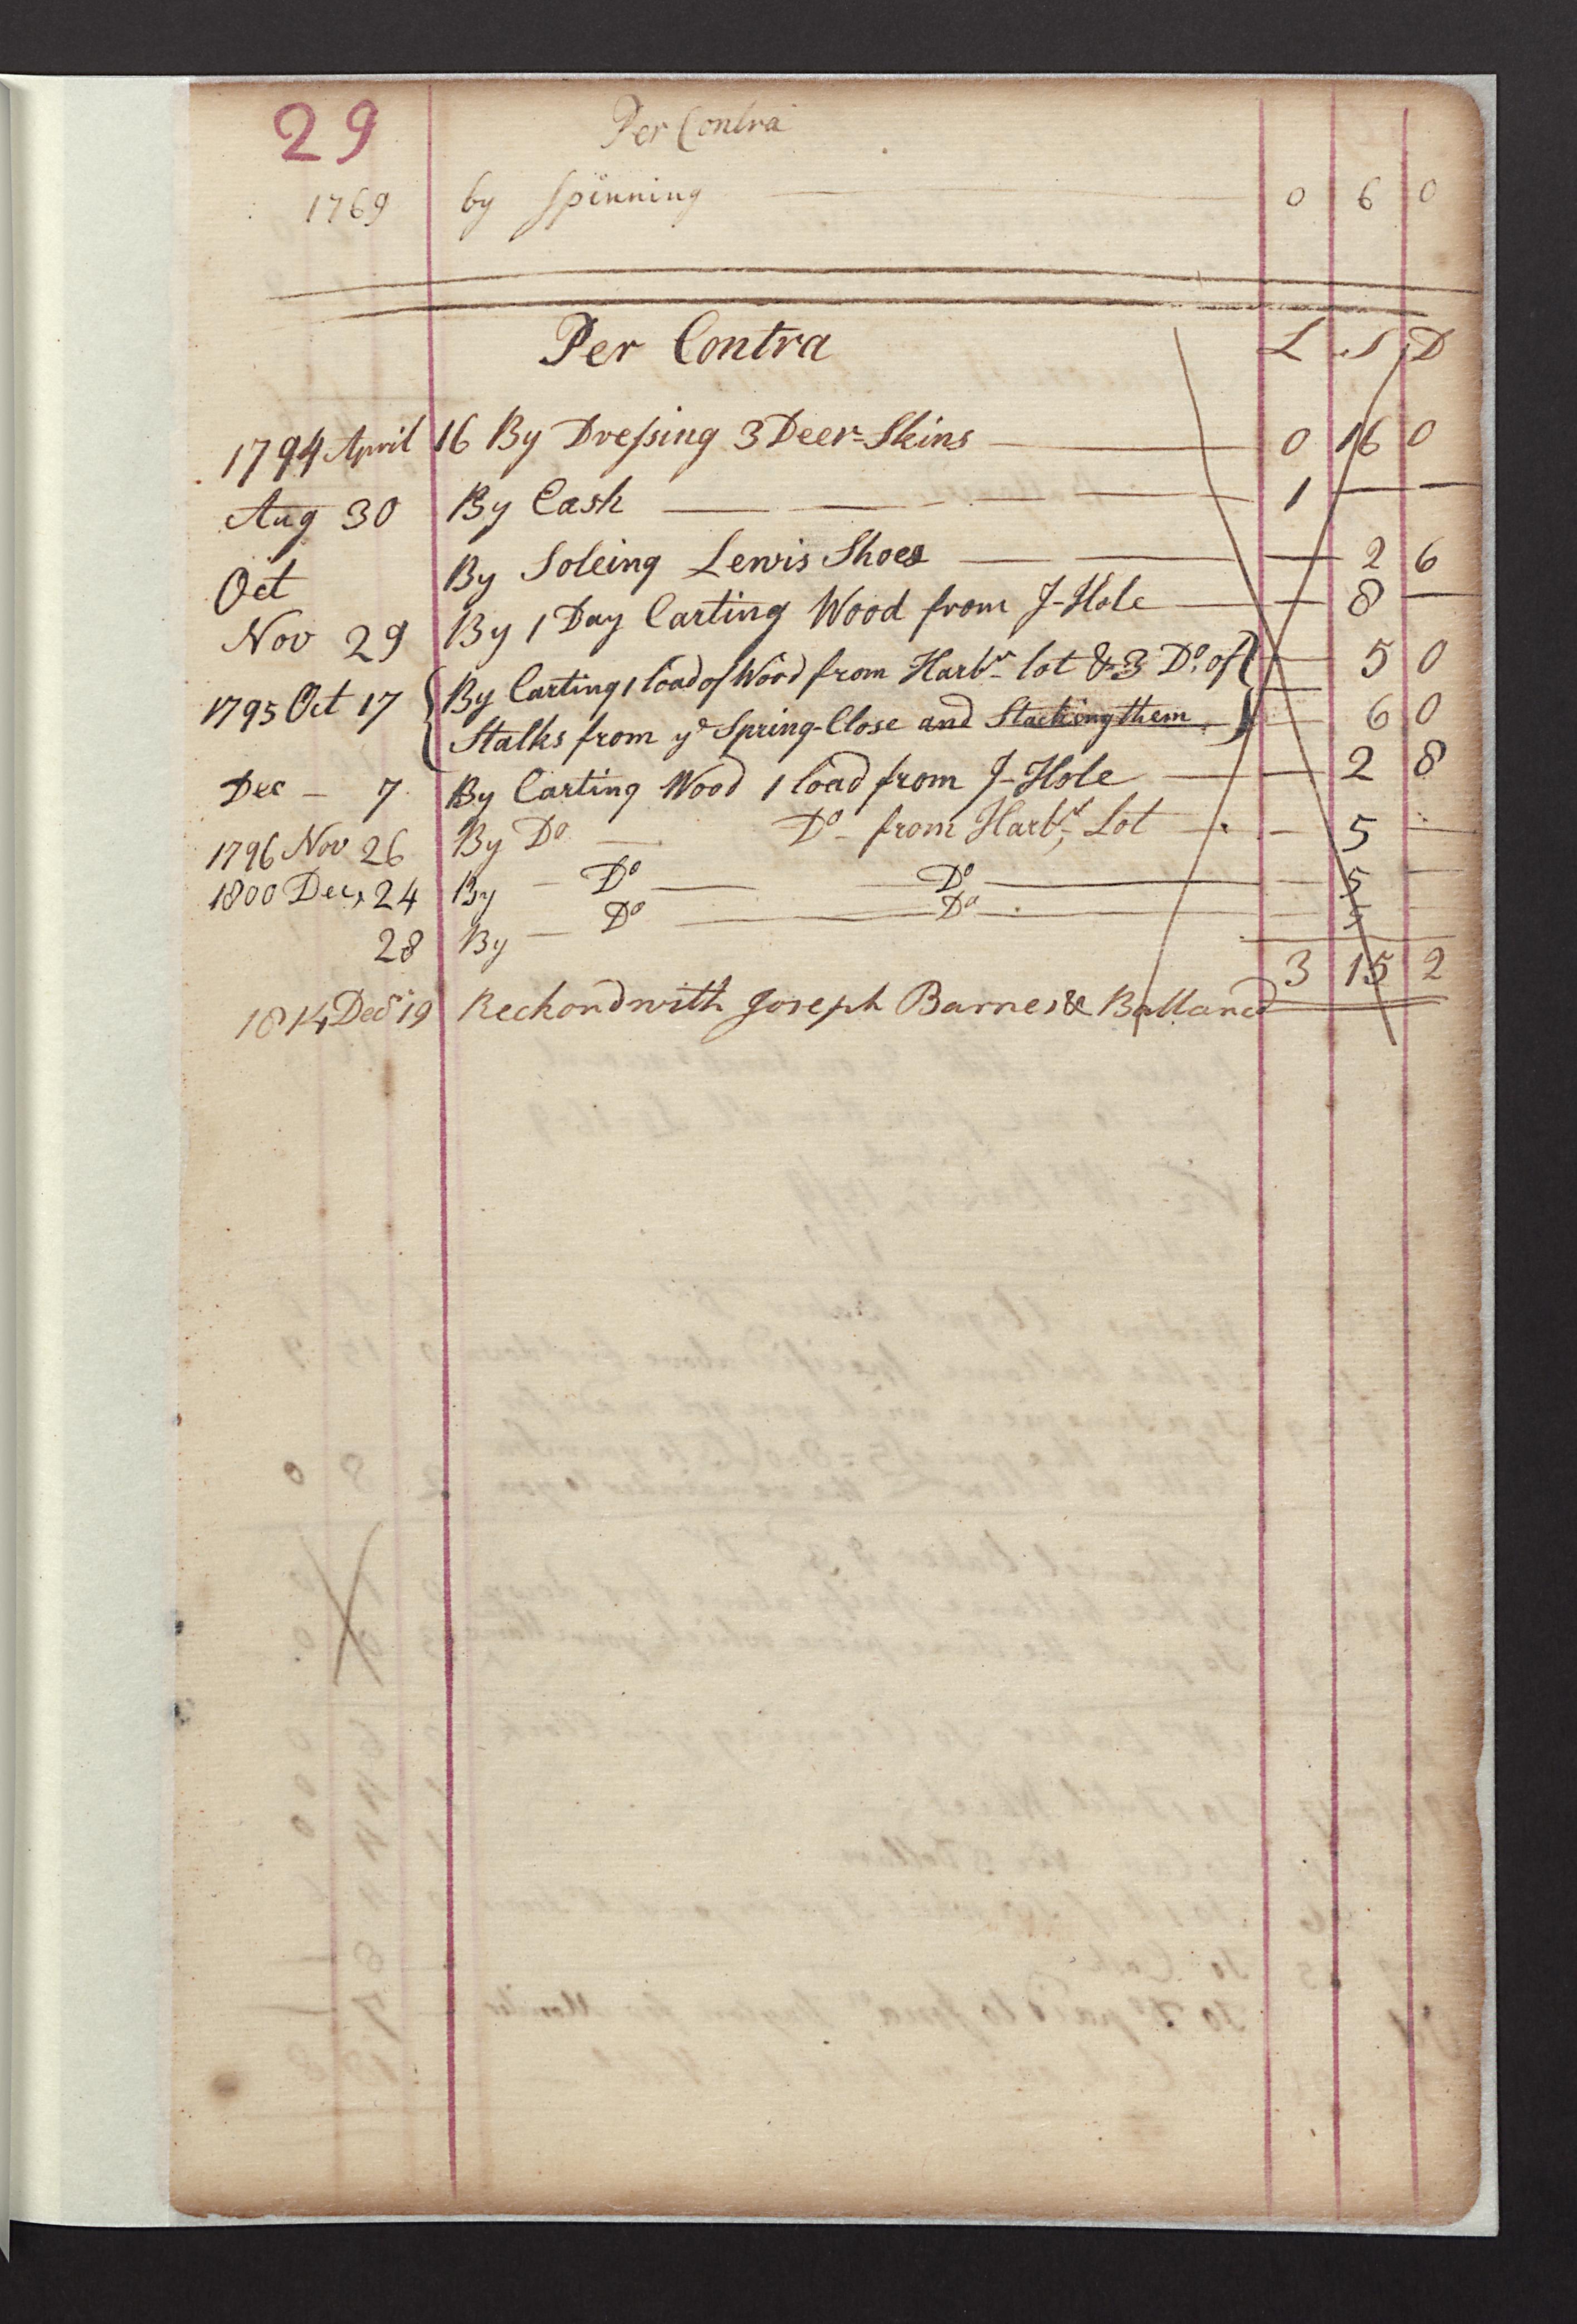 29 Per Contra
1769 by Spinning 0 6 0
Per Contra L S D
1794 April 16 By Dreſsing 3 Deer-Skins 0 16 0
Aug 30 By Cash 1 — —
Oct By Soleing Lewis Shoes — 2 6
Nov 29 By 1 Day Carting Wood from J-Hole — 8 —
1795 Oct 17 By Carting 1 load of Wood from Harbr lot & 3 Do. of — 5 0
Stalks from ye Spring-Close and Stacking them 6 0
Dec – 7 By Carting Wood 1 load from J-Hole — 2 8
1796 Nov 26 By Do — Do – from Harbr, Lot — 5 —
1800 Dec, 24 By — Do — Do — 5 —
28 By — Do — Do — 5 —
3 15 2
1814 Decr 19 Reckond with Joseph Barnes & Ballancd